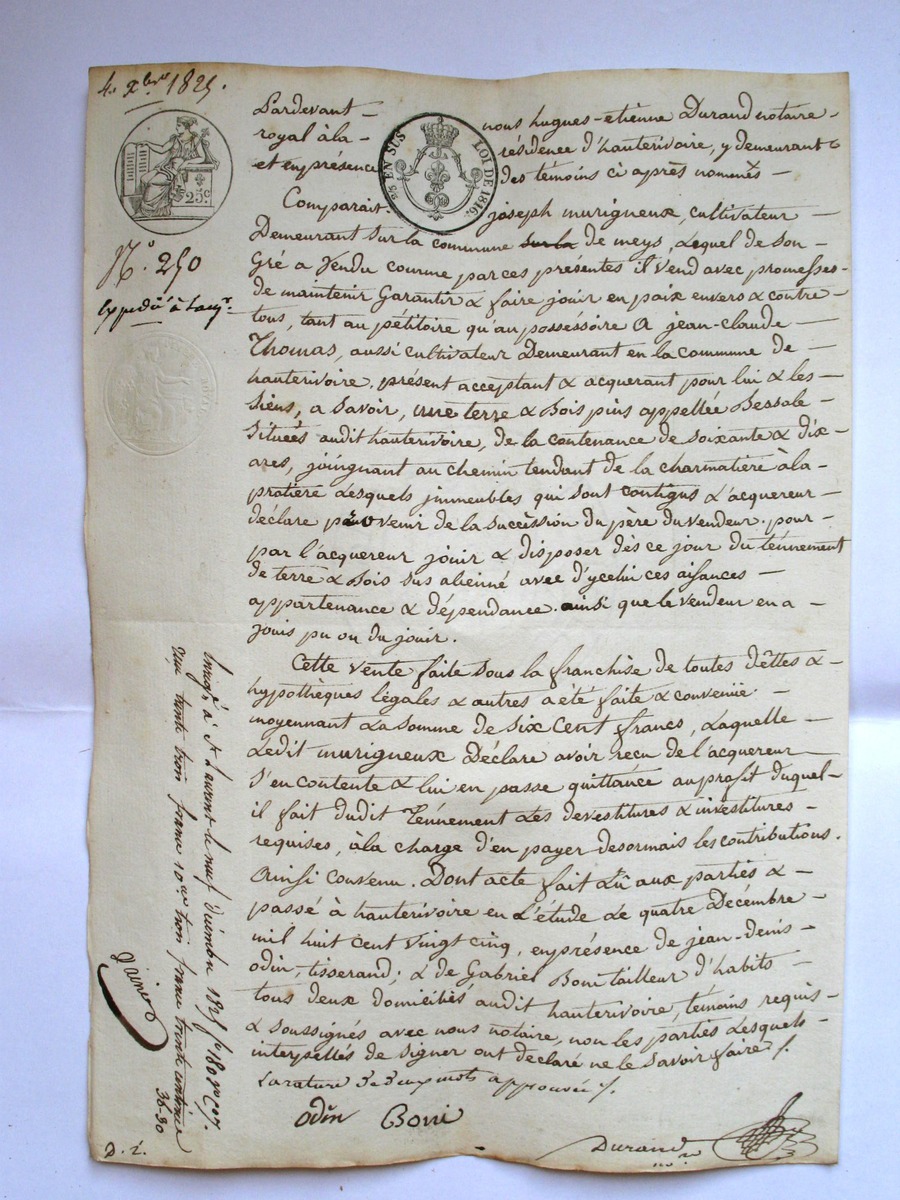 4. xbre 1825.
25c
25c EN SUS
LOI DE 1816.
N.o 250
expédié à l'acqr.
Pardevant nous hugues-etienne Durand notaire
royal à la résidence d'hauterivoire, y demeurant &
et en présence des témoins ci après nommés
Comparait. joseph murigneux, cultivateur
Demeurant sur la commune sur la de meys, Lequel de son
Gré a Vendu comme par ces présentes il Vend avec promesses
de maintenir Garantir & faire jouir en paix envers & contre
tous, tant au pétitoire qu'au possessoire A jean-claude
Thomas, aussi cultivateur Demeurant en la commune de
hauterivoire. présent acceptant & acquerant pour lui & les
Siens, a savoir, une terre & Bois pins appellée Bessale
Situées audit hauterivoire, de la contenance de soixante & dix
ares, joingnant au chemin tendant de la charmatière à la
pratière Lesquels immeubles qui sont contigus & l'acquereur
déclare provenir de la succession du père du vendeur. pour
par l'acquereur jouir & disposer dès ce jour du ténnement
de terre & Bois sus alienné avec d'ycelui ces aisances
appartenance & dépendance. ainsi que le vendeur en a
jouis pu ou du jouir.
Cette vente faite sous la franchise de toutes dêttes &
hypothèques légales & autres a été faite & convenüe
moyennant La somme de six cent francs, Laquelle
Ledit murigneux Déclare avoir reçu de l'acquereur
S'en contente & lui en passe quittance au profit duquel
il fait dudit Ténnement Les devestitures & investitures
requises, à la charge d'en payer desormais les contributions.
Ainsi convenu. Dont acte fait Lû aux parties &
passé à hauterivoire en L'étude Le quatre Décembre
mil huit cent vingt cinq, en présence de jean-denis
odin, tisserand; & de Gabriel Boni tailleur d'habits
tous deux domiciliés audit hauterivoire, témoins requis
& soussignés avec nous notaire, non les parties Lesquels
interpellés de signer ont declaré ne le savoir faire /.
La rature de deux mots approuvée /.
odin Boni
Durand
nore
Enregé à St Laurent le neuf décembre 1825 fo 180
reçu trente trois francs 10me trois francs trente centimes
36-30
D. 2.